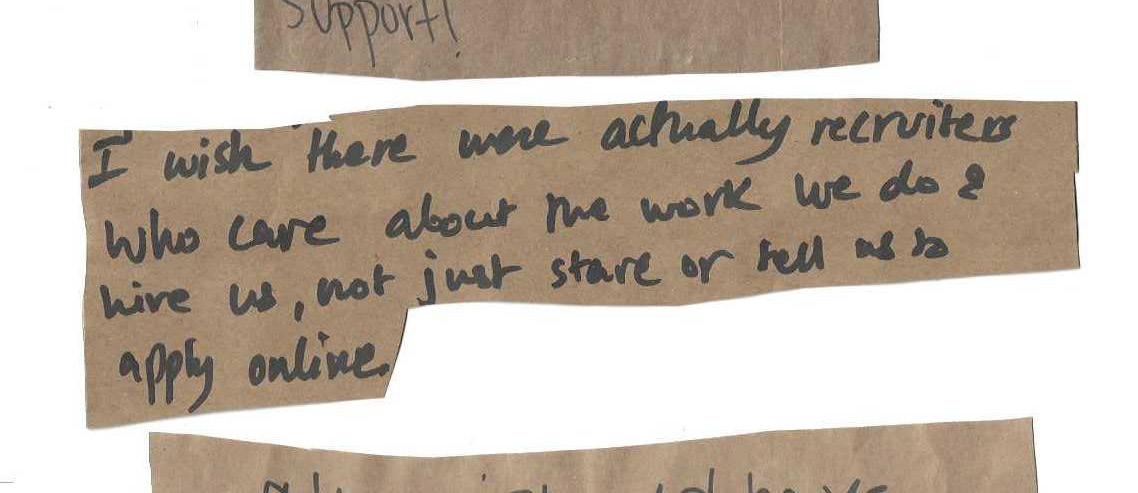 support!
I wish there were actually recruiters
who care about the work we do &
hire us, not just stare or tell us to
apply online.